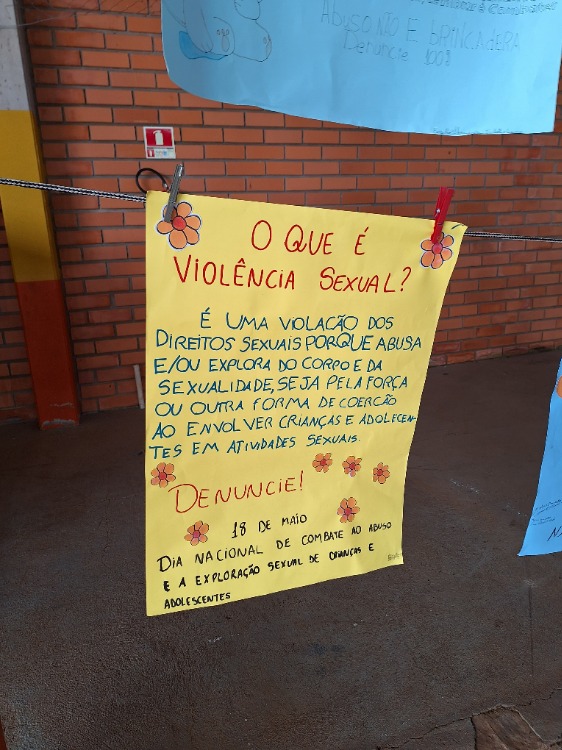 ABUSO NÃO É BRINCADEIRA
Denuncie 100!
O QUE É
VIOLÊNCIA SEXUAL?
É UMA VIOLAÇÃO DOS
DIREITOS SEXUAIS PORQUE ABUSA
E/OU EXPLORA DO CORPO E DA
SEXUALIDADE, SEJA PELA FORÇA
OU OUTRA FORMA DE COERCÃO
AO ENVOLVER CRIANÇAS E ADOLECEN-
TES EM ATIVIDADES SEXUAIS.
DENUNCIE!
18 DE MAIO
DIA NACIONAL DE COMBATE AO ABUSO
E A EXPLORAÇÃO SEXUAL DE CRIANÇAS E
ADOLESCENTES